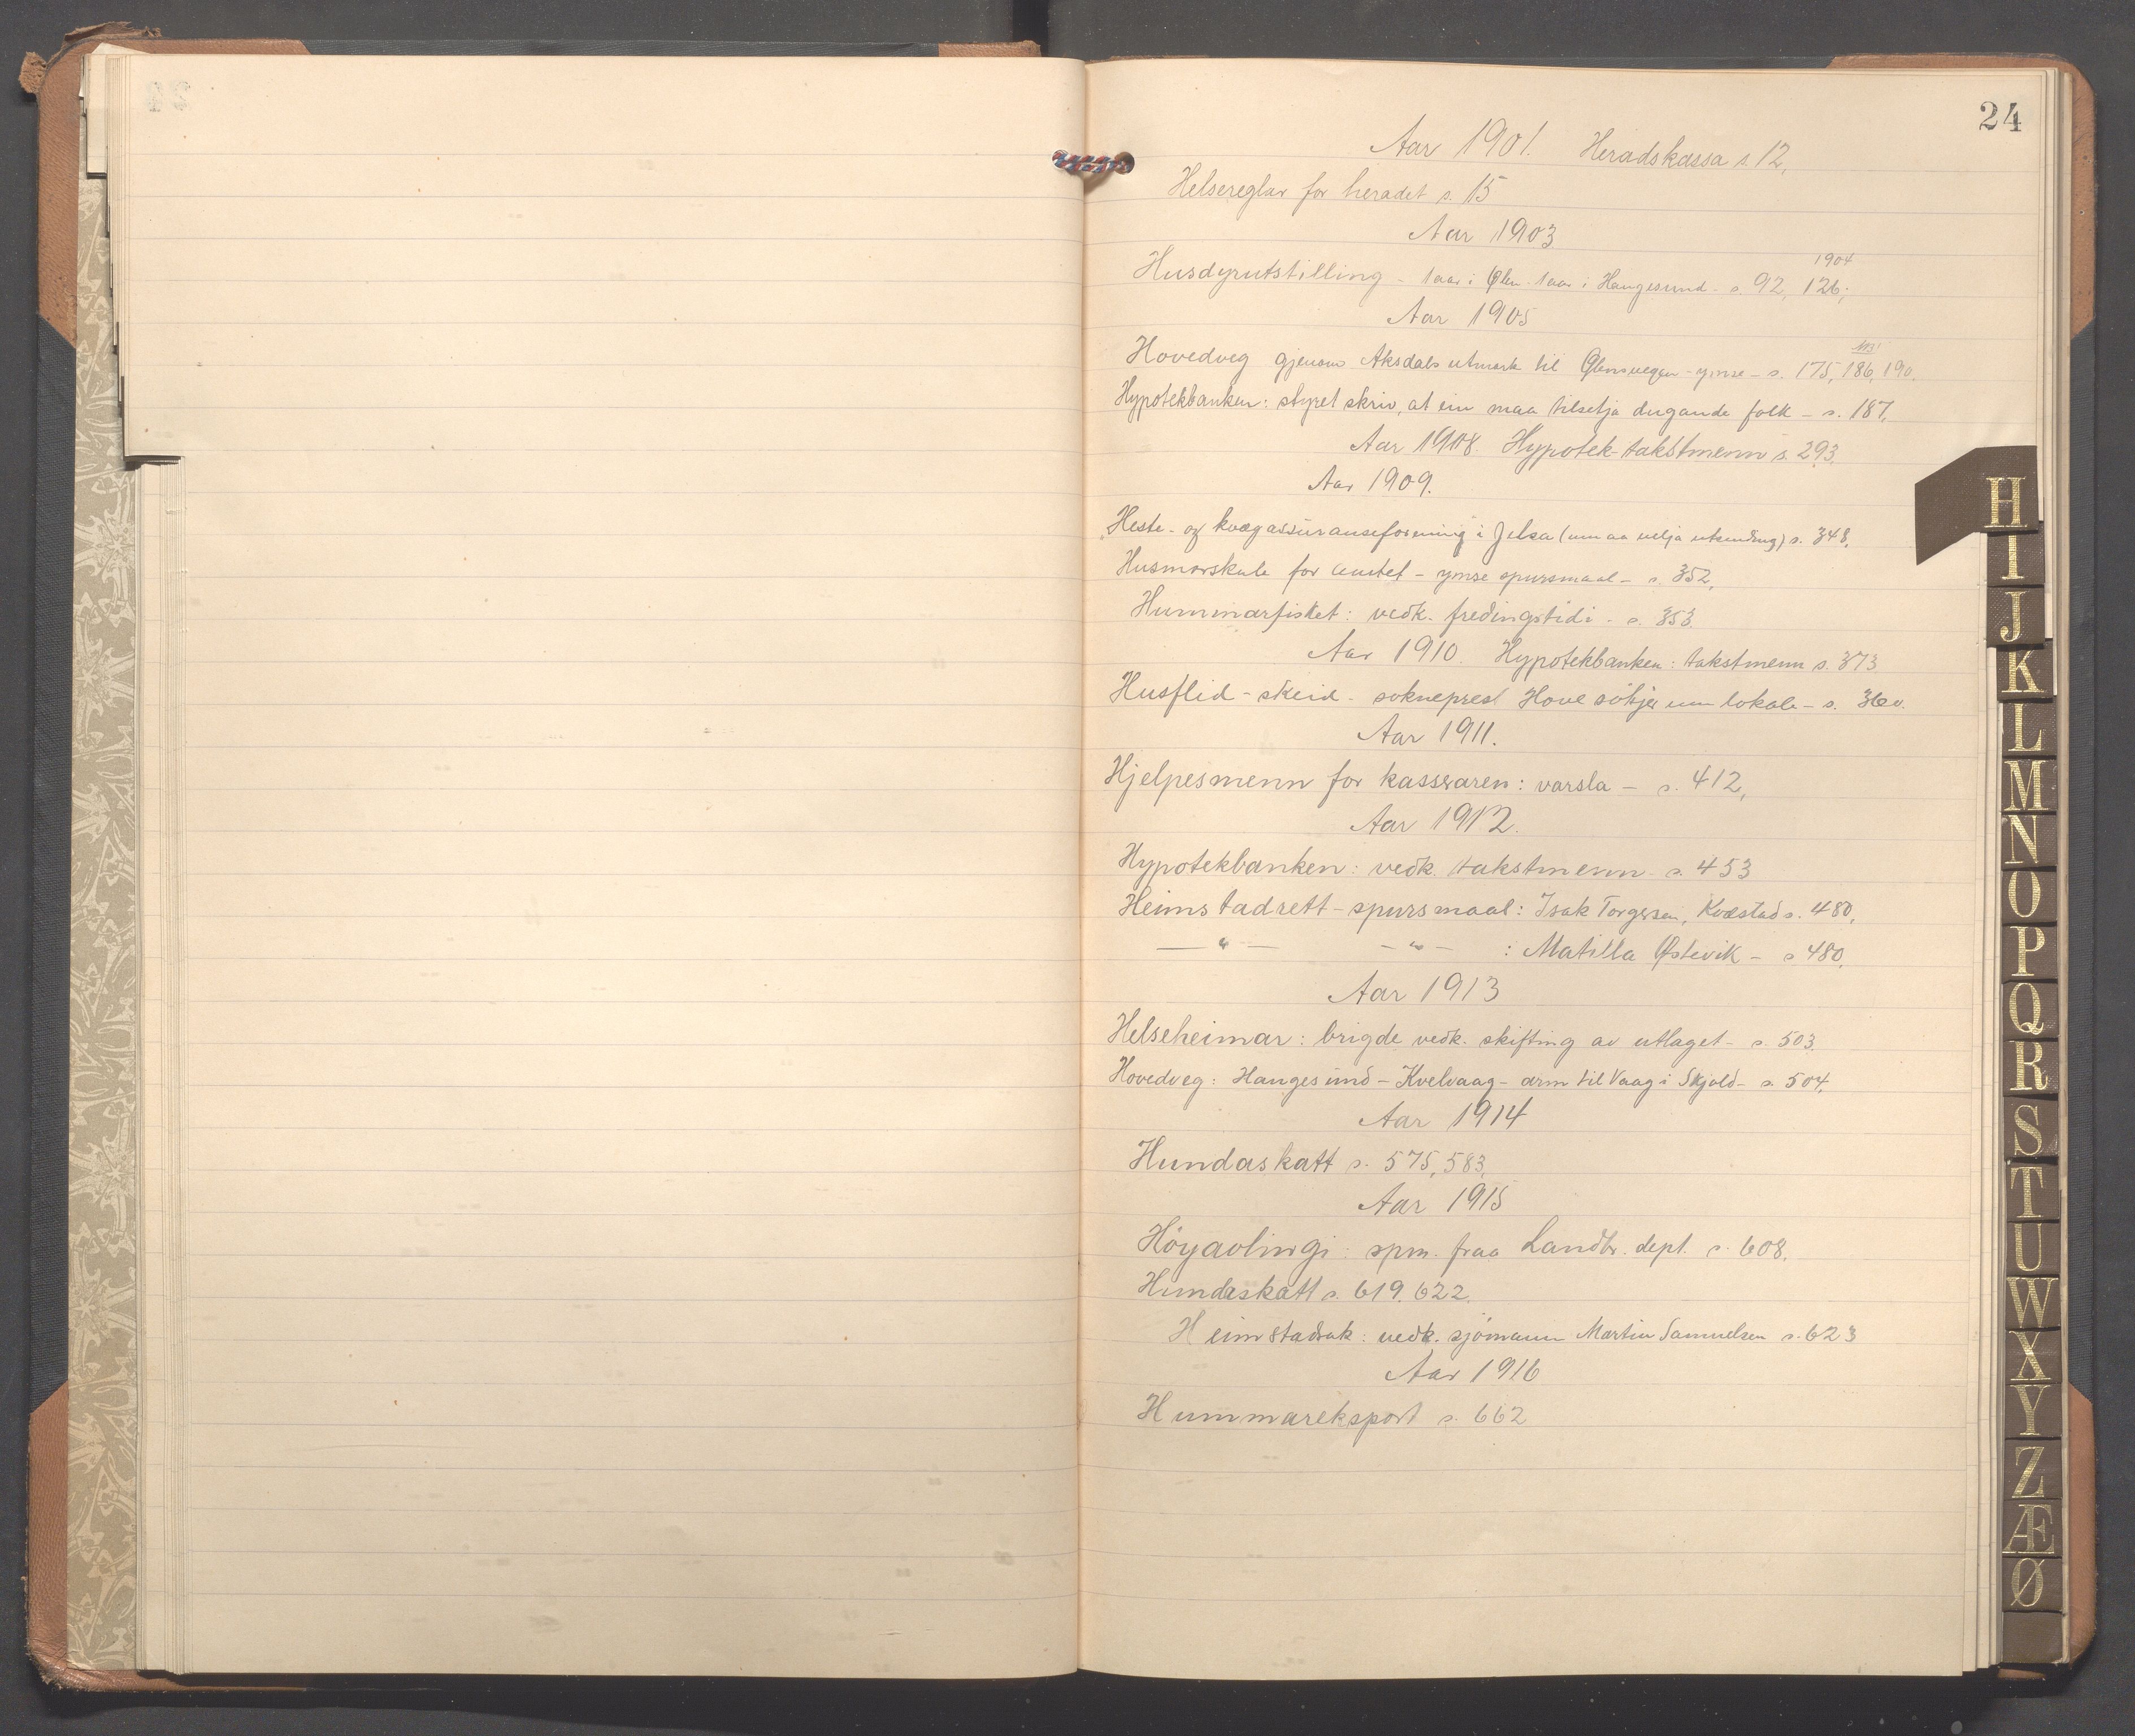 24
Aar 1901. Heradskassa s. 12,
Helsereglar for heradet s. 15
Aar 1903
1904
Husdyrutstilling - 1 aar i Ølen 1 aar i Haugesund - s. 92, 126;
Aar 1905
Hovedveg gjenom Aksdals utmark til Ølensvegen - ymse - s. 175, 186, 190.
Hypotekbanken: styret skriv, at ein maa tilsetja dugande folk - s. 187,
Aar 1908. Hypotek-takstmenn s. 293.
Aar 1909.
Heste- og kvægassuranseforening i Jelsa (um aa velja utsending) s. 348,
Husmorskule for amtet - ymse spursmaal - s. 352,
Hummarfisket: vedk. fredingstidi - s. 353.
Aar 1910. Hypotekbanken: takstmenn s. 373
Husflid-skeid - sokneprest Hove søkjer um lokale - s. 360.
Aar 1911.
Hjelpesmenn for kasseraren: varsla - s. 412,
Aar 1912.
Hypotekbanken: vedk. takstmenn - s. 453
Heimstadrett-spursmaal: Isak Torgersen, Kvæstad s. 480,
— " — - " - : Matilla Østevik - s 480.
Aar 1913
Helseheimar: brigde vedk. skifting av utlaget - s. 503.
Hovedveg: Haugesund - Kvelvaag - arm til Vaag i Skjold - s. 504,
Aar 1914
Hundaskatt s. 575, 583,
Aar 1915
Höyavlingi: spm. fraa Landbr. dept. s. 608.
Hundaskatt s. 619. 622.
Heimstadsak: vedk. sjömann Martin Samuelsen s. 623
Aar 1916
Hummareksport s. 662
H
I
J
K
L
M
N
O
P
Q
R
S
T
U
W
X
Y
Z
Æ
Ø